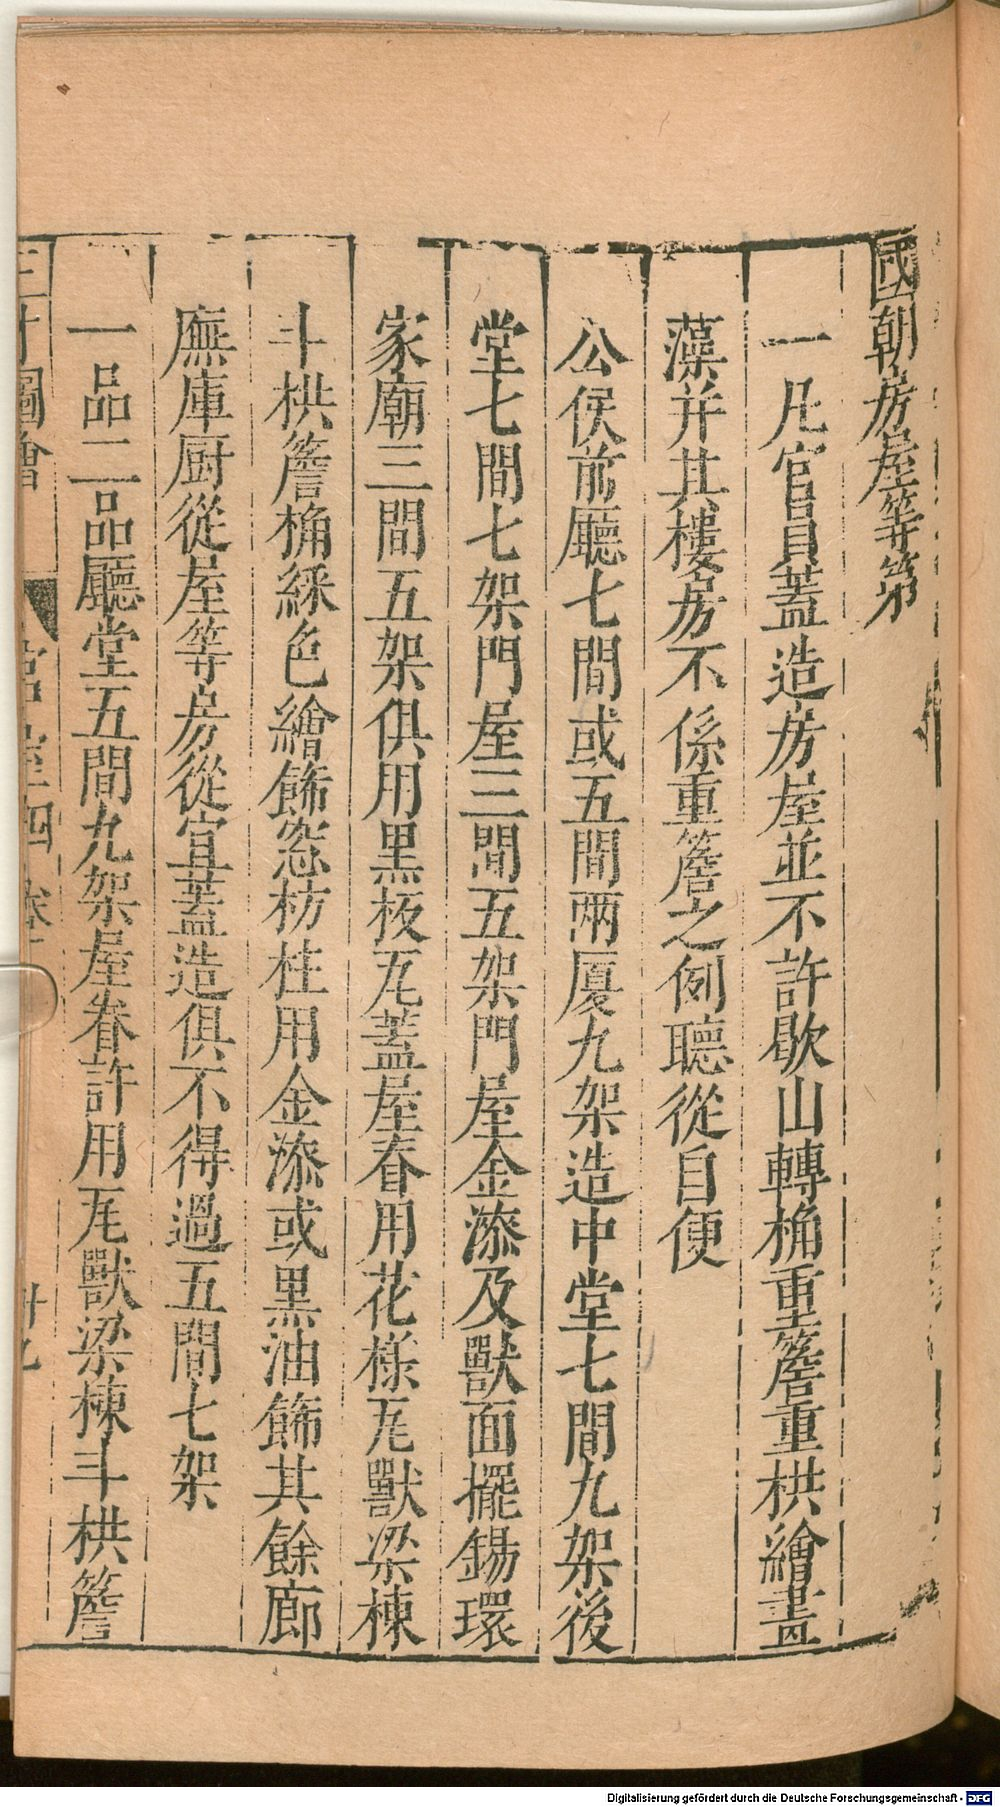 國朝房屋等第
一凡官員蓋造房屋並不許歇山轉桷重簷重栱繪畫
藻井其樓房不係重簷之例聽從自便
公侯前廳七間或五間兩厦九架造中堂七間九架後
堂七間七架門屋三間五架門屋金漆及獸面擺錫環
家廟三間五架俱用黑板瓦蓋屋脊用花樣瓦獸梁棟
斗栱簷桷綵色繪飾窓枋柱用金漆或黑油飾其餘廊
廡庫厨從屋等房從宜蓋造俱不得過五間七架
一品二品廳堂五間九架屋脊許用瓦獸梁棟斗栱簷
三才圖會 宮室四卷 卅九
Digitalisierung gefördert durch die Deutsche Forschungsgemeinschaft - DFG